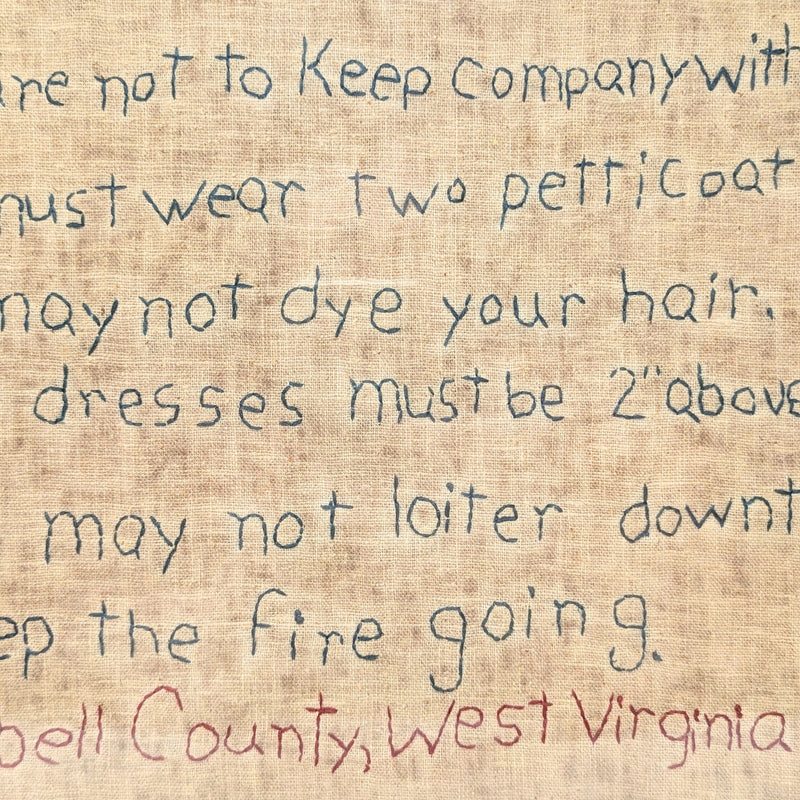 are not to Keep company with
must wear two petticoat
may not dye your hair.
dresses must be 2" above
may not loiter downt
ep the fire going.
bell County, West Virginia